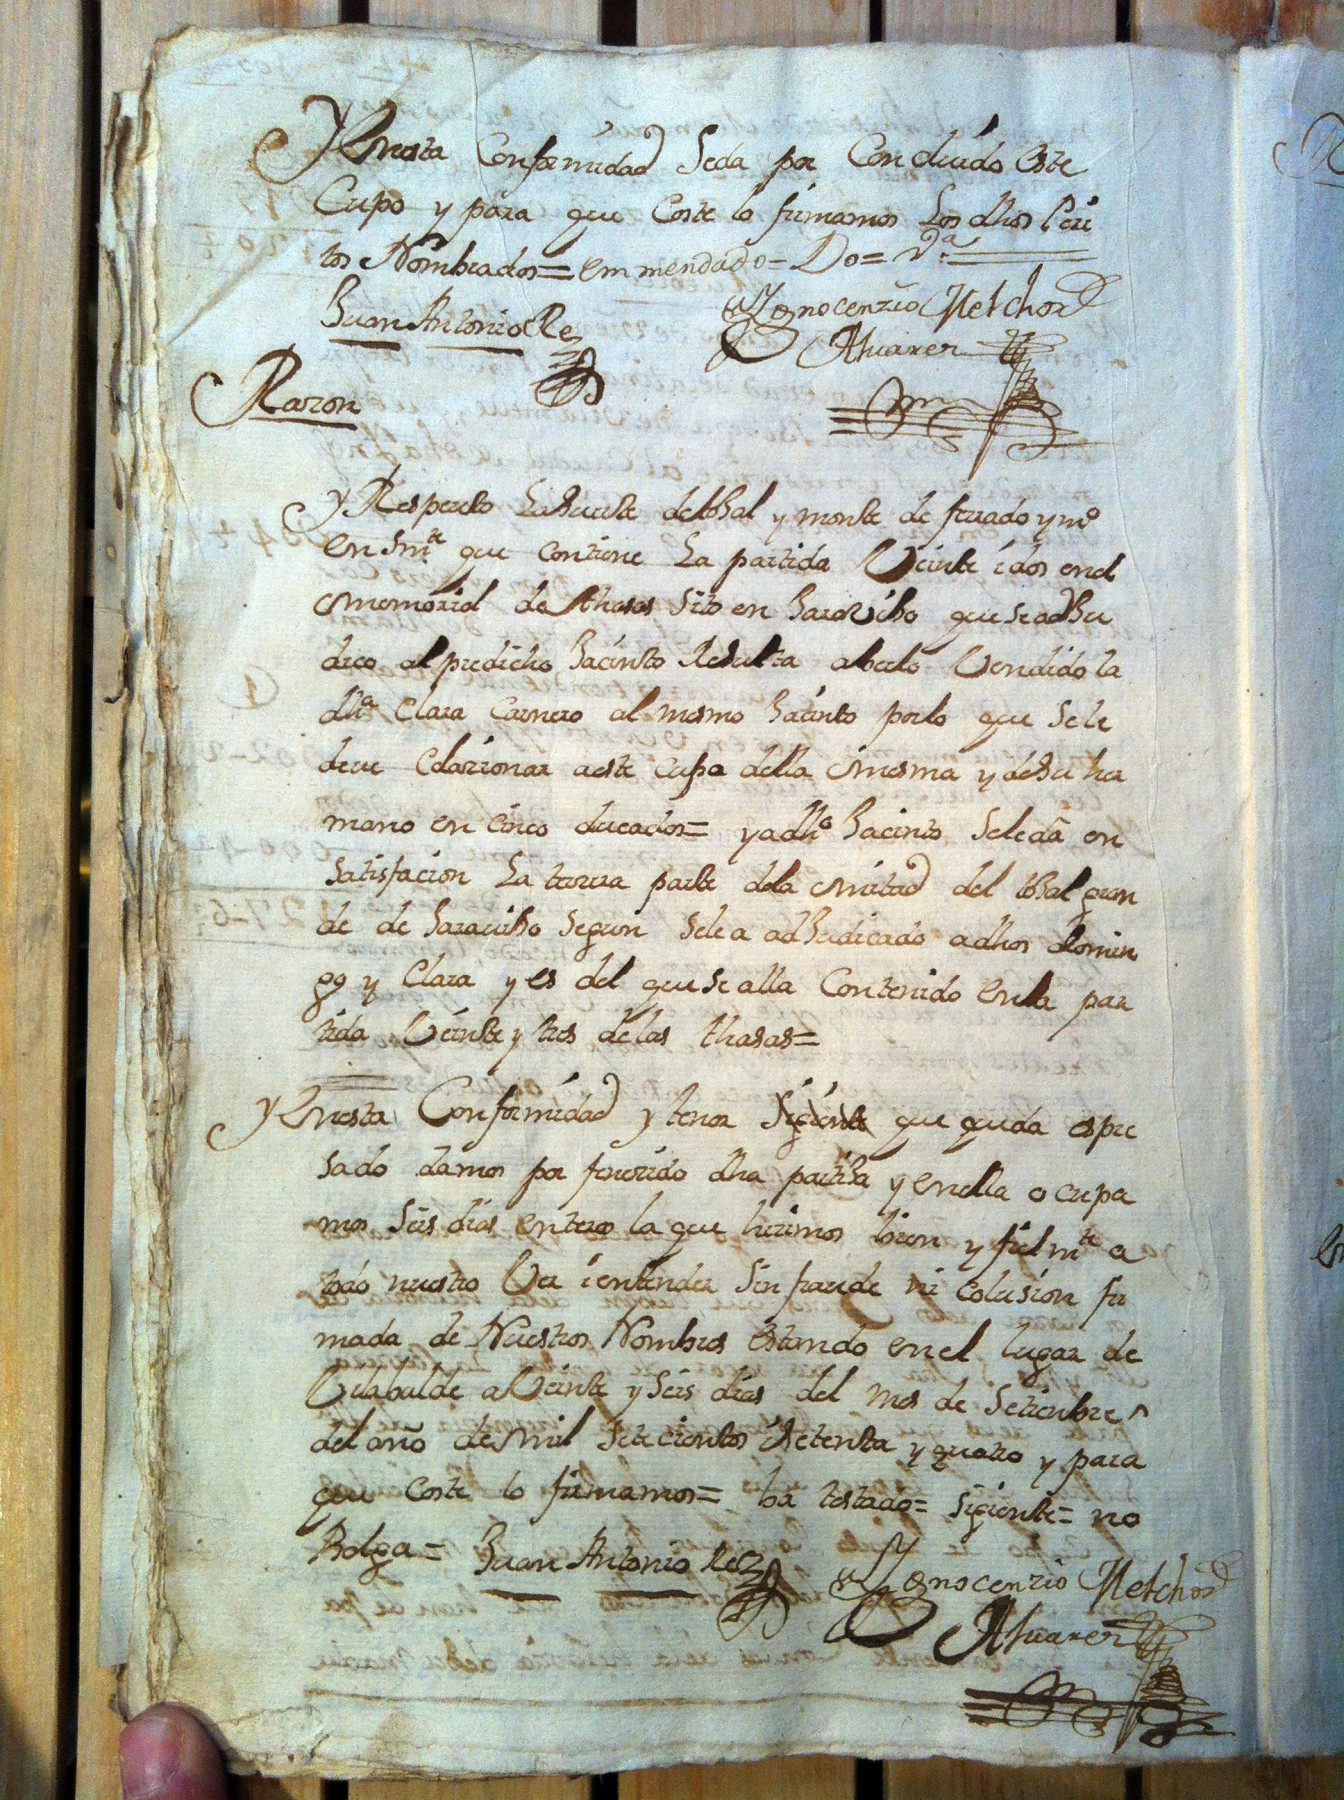 Y Enesta Conformidad Seda por Concluido Este
Cupo y para que Coste lo firmamos Los dhos Peri
tos Nombrados= emmendado= Do= Va
Juan Antonio Rez
Ygnocenzio Melchor
Alvarez
Razon
y Respecto La Suerte de tohal y monte de ferado y mo
en Smte que contiene La partida Veinte i dos en el
memorial de thasas Sito en que se adhu
dico al predicho Jacinto Resulta aberlo Vendido la
dha Clara Carnero al mesmo Jacinto porlo que Sele
deve aeste Cupo della mesma y desu her
mano en Cinco ducados= y a dho Jacinto Seleda en
Satisfacion La tercia parte dela mitad del tohal gran
de de Segun Sele a adhudicado adhos Domin
go y Clara y es del que se alla Contenido En la par
tida Veinte y tres de las thasas=
y Enesta Conformidad y tenor Sigiente que queda espre
sado damos por fenerido dha partiha y enella ocupa
mos Seis dias Enteros la que hicimos bien y fielmte a
todo nuestro Ver i entender Sin fraude ni Colusion fir
mada de Nuestros Nombres Estando en el lugar de
Vilabalde a Veinte y Seis dias del mes de Setienbre
del año de mil Setecientos Setenta y quatro y para
que Coste lo firmamos= ba testado= Sigiente= no
Balga= Juan Antonio Rez
Ygnocenzio Melchor
Alvarez